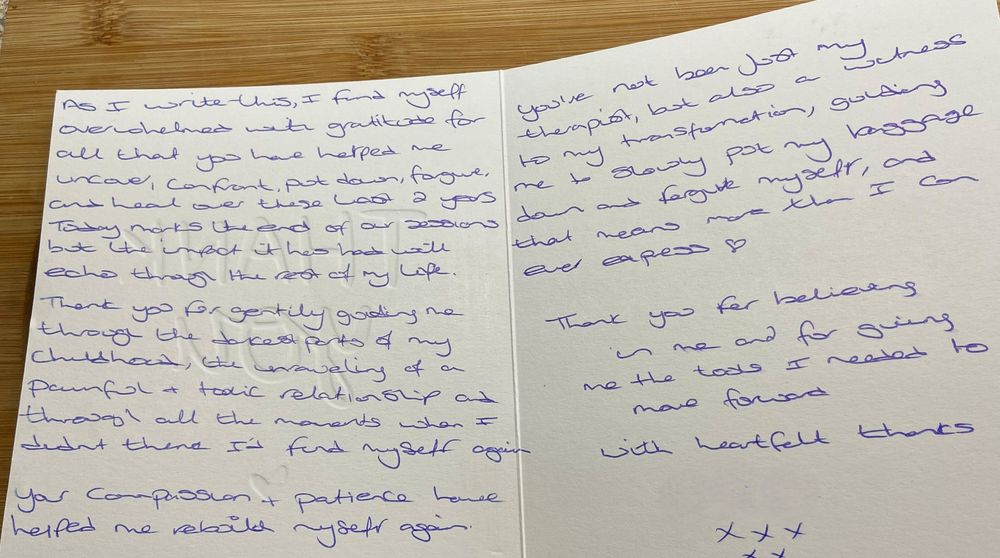 As I write this, I find myself
overwhelmed with gratitude for
all that you have helped me
uncover, confront, put down, forgive,
and heal over these last 2 years
Today marks the end of our sessions
but the impact it has had will
echo through the rest of my life.
Thank you for gentily guiding me
through the darkest parts of my
Childhood, the unraveling of a
painful + toxic relationship and
through all the moments when I
didnt think I'd find myself again
Your compassion + patience have
helped me rebuild myself again.
THANK
YOU
You've not been just my
therapist, but also a witness
to my transformation, guiding
me to slowly put my baggage
down and forgive myself, and
that means more than I can
ever express ♡
Thank you for believing
in me and for giving
me the tools I needed to
move forward
with heartfelt thanks
x x x
x x